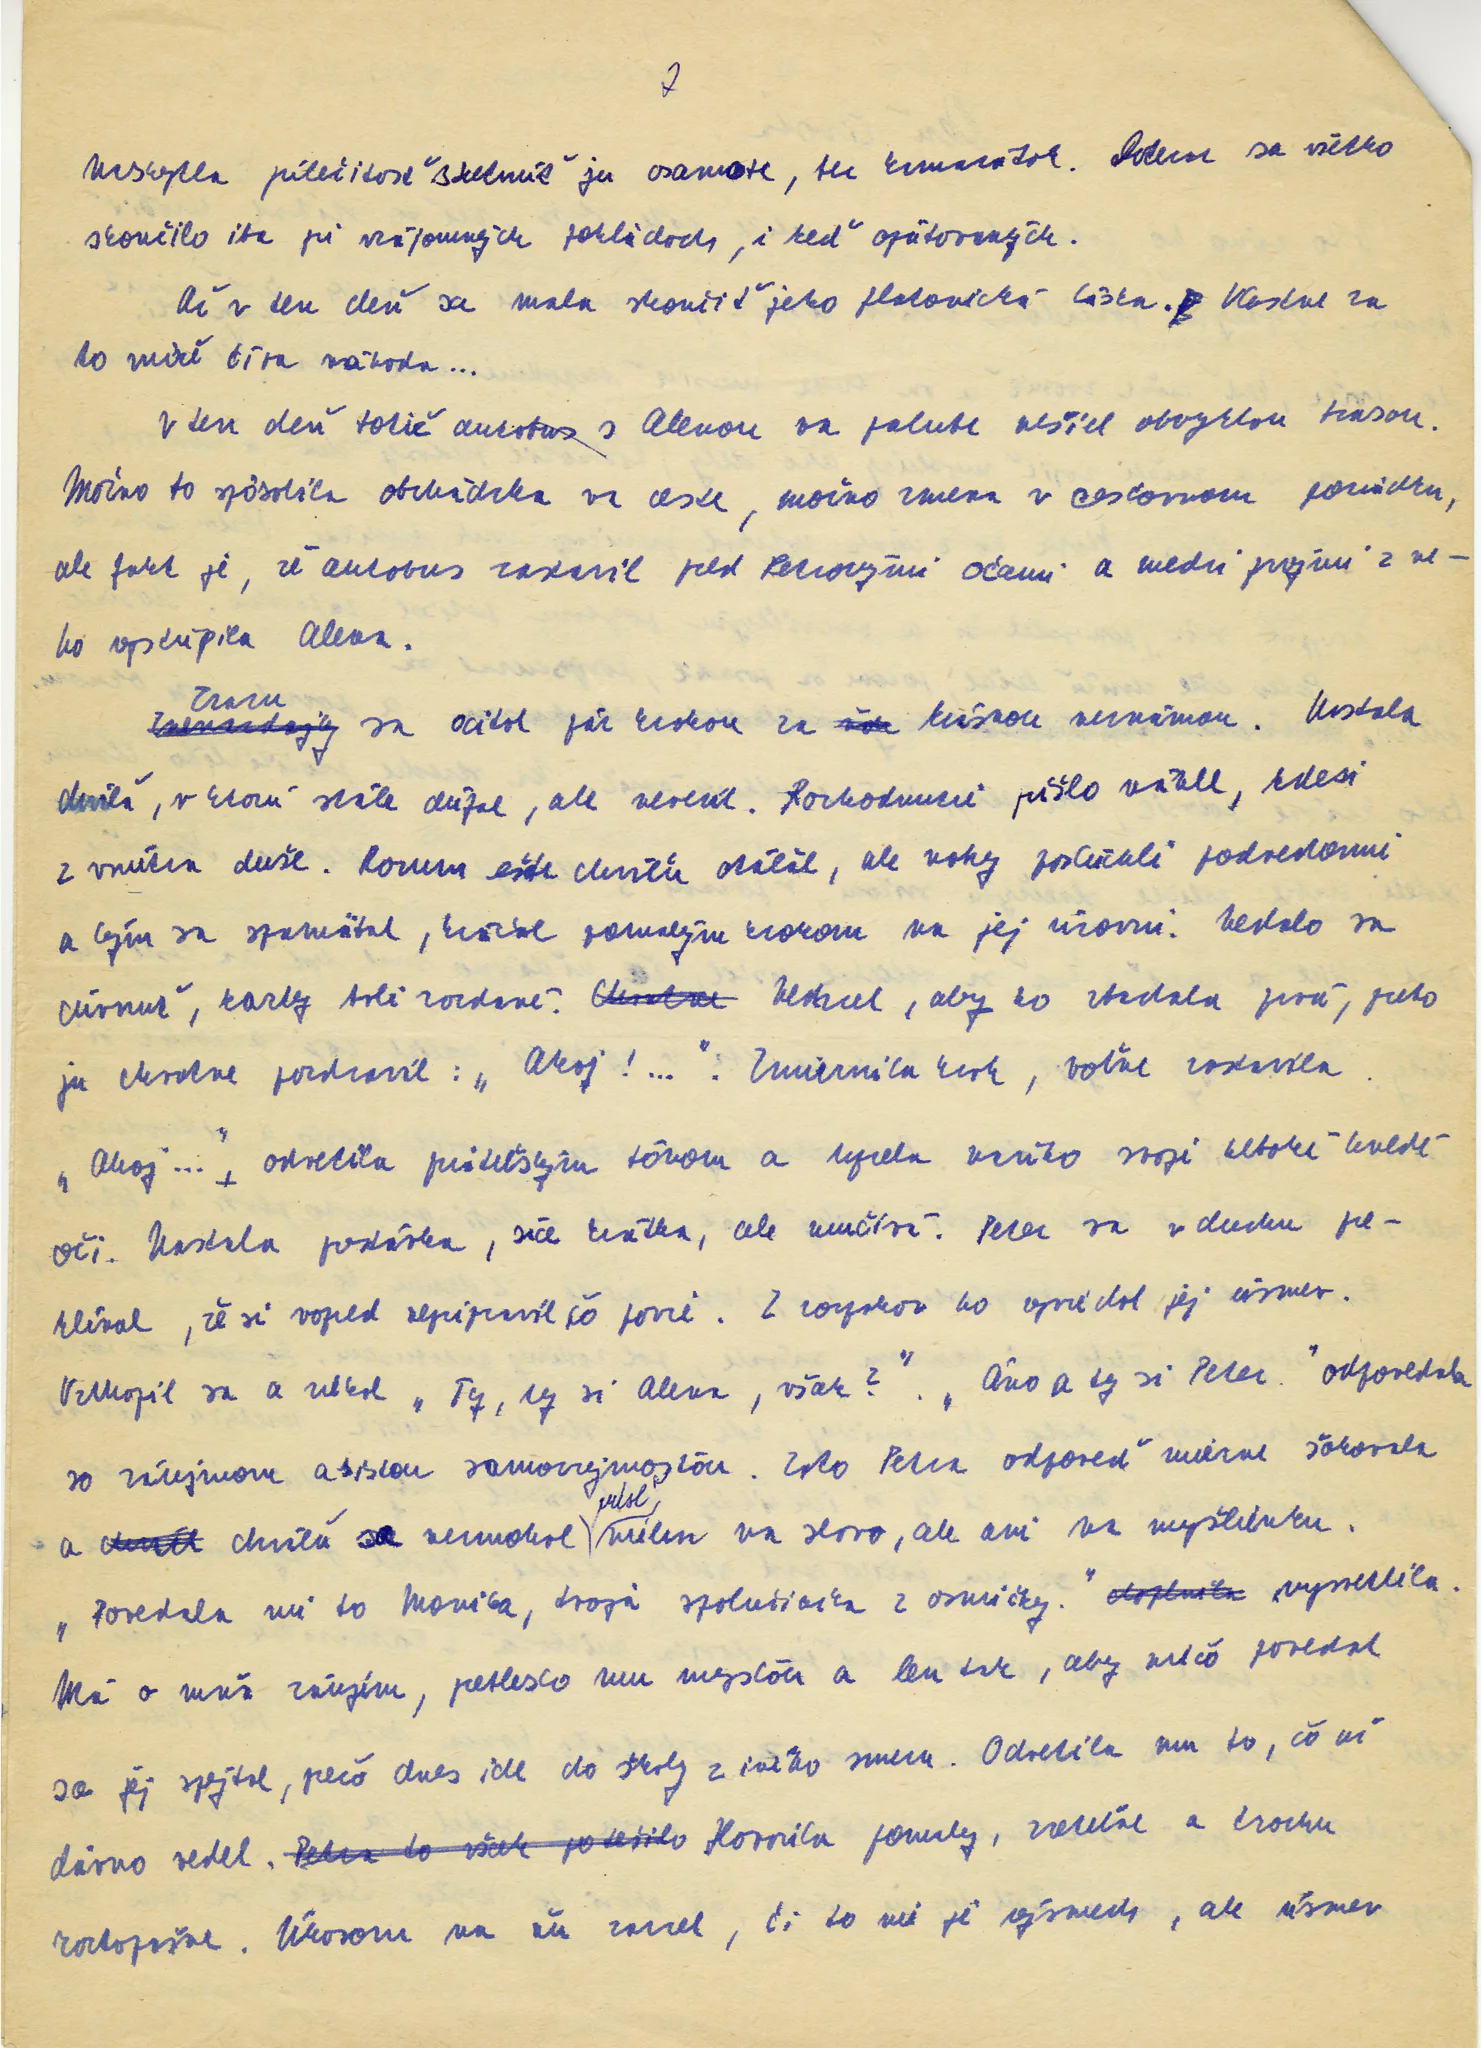 7
naskytla príležitosť stretnúť ju osamote, bez kamarátok. Potom sa všetko
skončilo iba pri vzájomných pohľadoch, i keď opätovaných.
Až v ten deň sa mala skončiť jeho platonická láska. Vlastne za
to môže číra náhoda...
V ten deň totiž autobus s Alenou na palube nešiel obvyklou trasou.
Možno to spôsobila obchádzka na ceste, možno zmena v cestovnom poriadku,
ale fakt je, že autobus zastavil pred Petrovými očami a medzi prvými z ne-
ho vystúpila Alena.
Zrazu
sa ocitol pár krokov za krásnou neznámou. Nastala
chvíľa, v ktorú stále dúfal, ale neveril. Rozhodnutie prišlo náhle, kdesi
z vnútra duše. Rozum ešte chvíľu váhal, ale nohy poslúchli podvedomie
a kým sa spamätal, kráčal pomalým krokom na jej úrovni. Nedalo sa
cúvnuť, karty boli rozdané. Chvatne Nechcel, aby ho zbadala prvá, preto
ju chvatne pozdravil: „Ahoj!...". Zmiernila krok, voľne zastavila.
„Ahoj...", odvetila priateľským tónom a uprela naňho svoje hlboké hnedé
oči. Nastala prestávka, síce krátka, ale mučivá. Peter sa v duchu pre-
klínal, že si vopred nepripravil čo povie. Z rozpakov ho vyviedol jej úsmev.
Vzchopil sa a riekol „Ty, ty si Alena, však?". „Áno a ty si Peter." odpovedala
so záujmom a istou samozrejmosťou. Táto Petra odpoveď mierne šokovala
a chvíľu nemohol prísť nielen na slovo, ale ani na myšlienku.
„Povedala mi to Monika, tvoja spolužiačka z osmičky." doplnila vysvetlila.
Má o mňa záujem, preblesklo mu mysľou a len tak, aby niečo povedal
sa jej spýtal, prečo dnes ide do školy z iného smeru. Odvetila mu to, čo už
dávno vedel. Petra to však potešilo Hovorila pomaly, zreteľne a trochu
roztopašne. Úkosom na ňu zazrel, či to nie je výsmech, ale úsmev